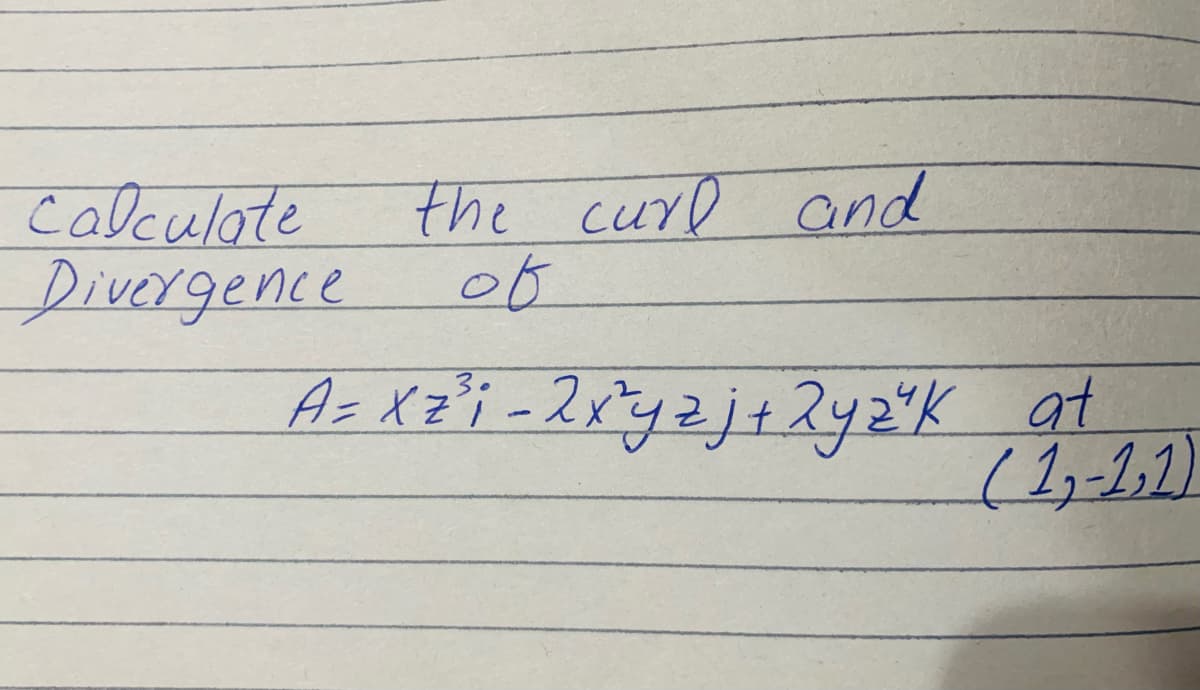 Calculate the curl and
Divergence of
A= xz³i - 2x²yzj + 2yz⁴K at
(1,-1,1)